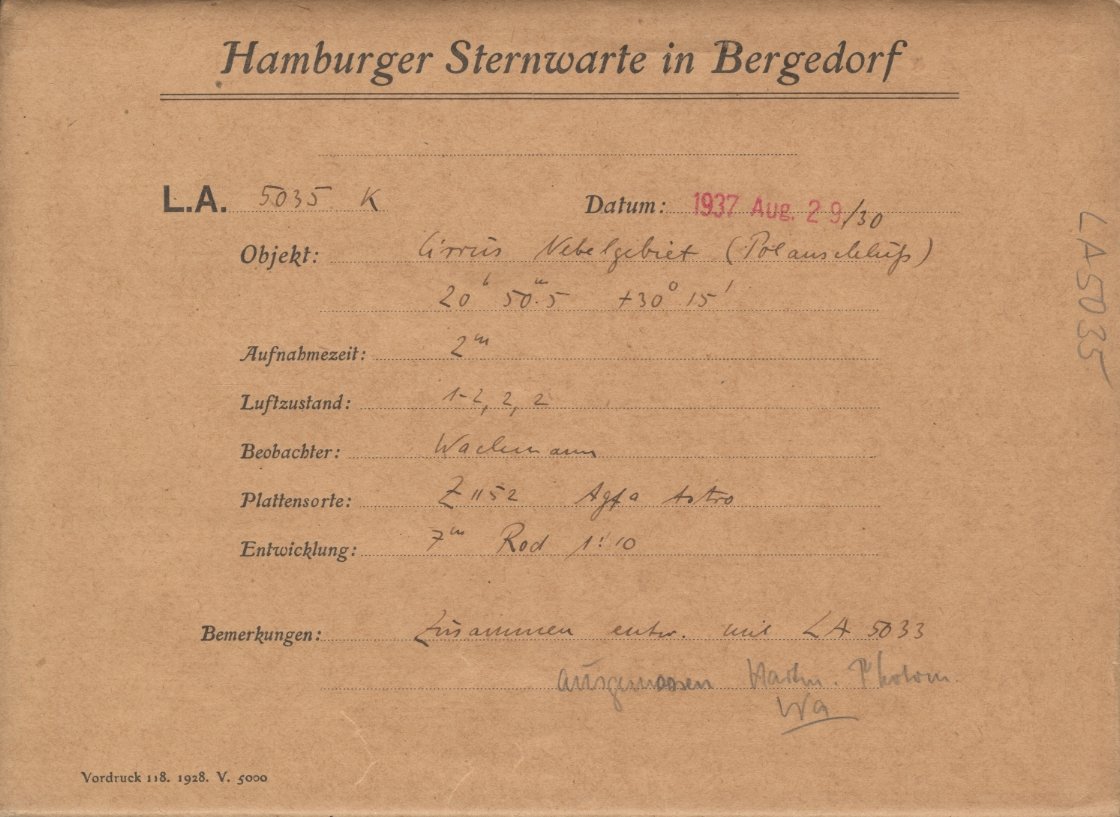 Hamburger Sternwarte in Bergedorf
L.A. 5035 K
Datum: 1937 Aug. 29/30
Objekt: Cirrus Nebelgebiet (Polanschluß)
20ʰ 50ᵐ.5 +30° 15'
Aufnahmezeit: 2ᵐ
Luftzustand: 1-2, 2, 2
Beobachter: Wachmann
Plattensorte: Z 1152 Agfa Astro
Entwicklung: 7ᵐ Rod 1:10
Bemerkungen: Zusammen entw. mit LA 5033
ausgemessen Hartm. Photom.
Wa
Vordruck 118. 1928. V. 5000
LA 5035